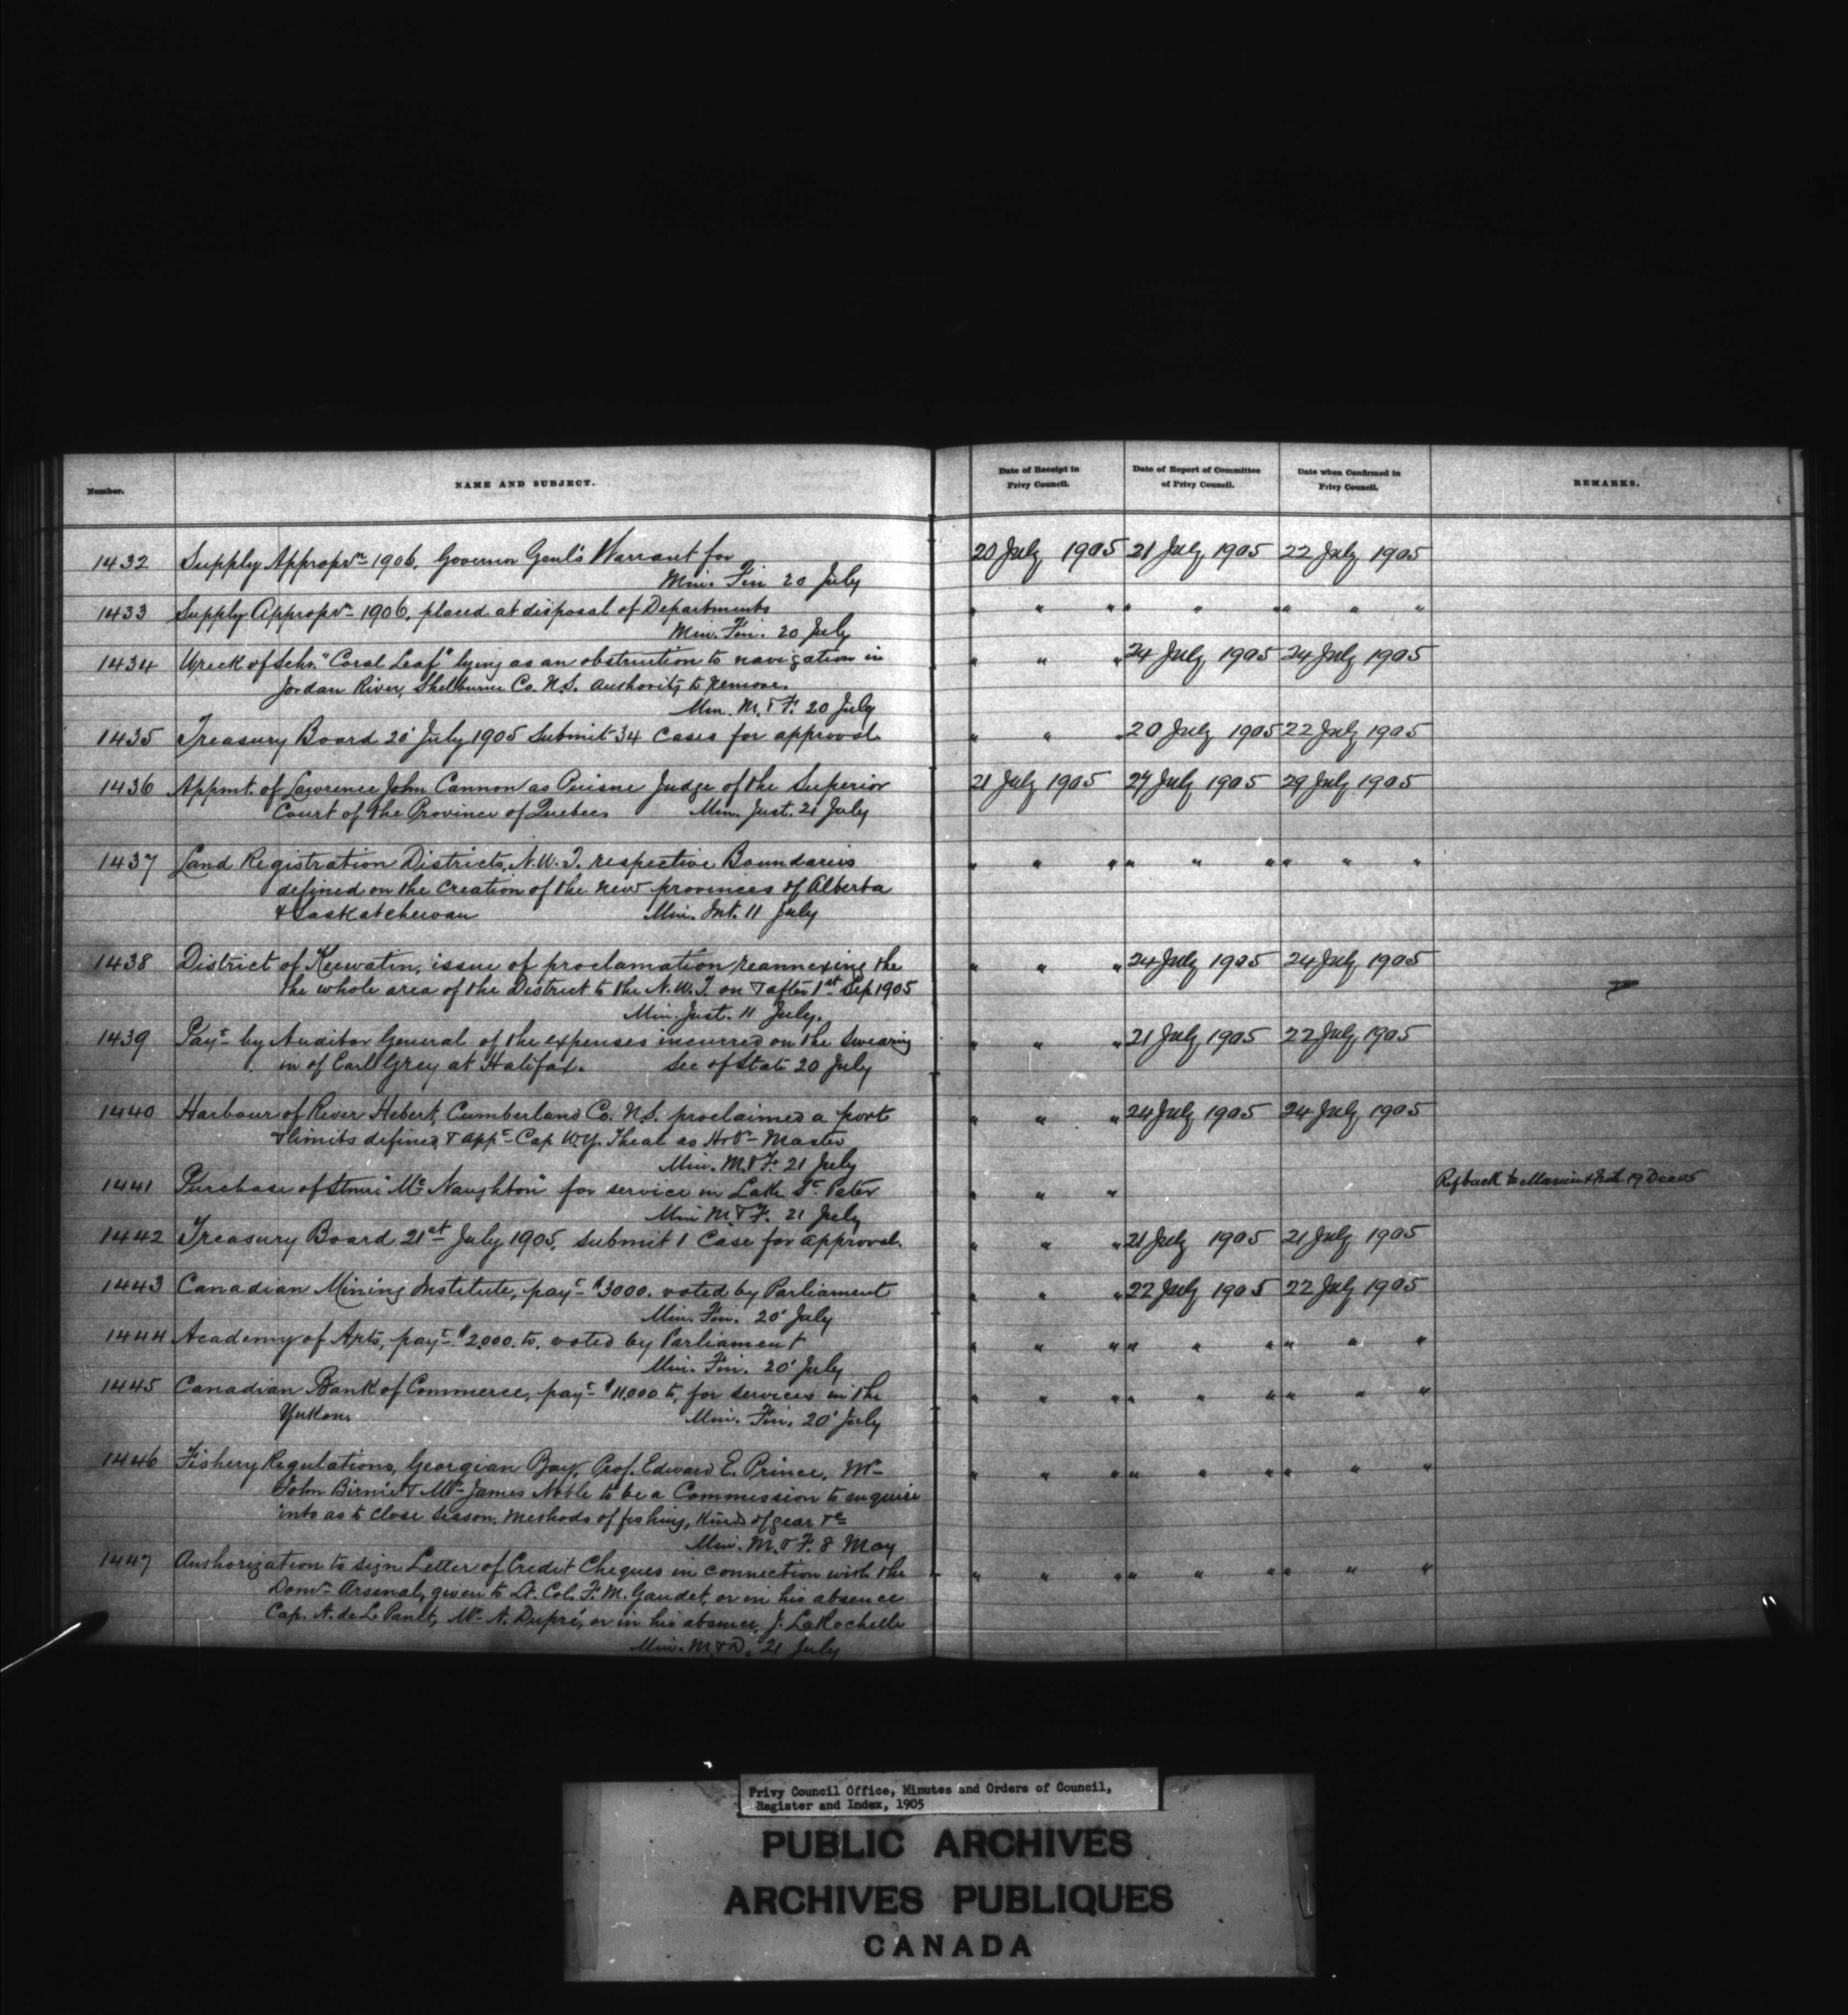 Number.
NAME AND SUBJECT.
Date of Receipt in Privy Council.
Date of Report of Committee of Privy Council.
Date when Confirmed in Privy Council.
REMARKS.
1432 Supply Appropn 1906, Governor Genl's Warrant for 20 July 1905 21 July 1905 22 July 1905
Min. Fin 20 July
1433 Supply Appropn 1906, placed at disposal of Departments " " " " " " " "
Min. Fin. 20 July
1434 Wreck of Schr. "Coral Leaf" lying as an obstruction to navigation in " " " 24 July 1905 24 July 1905
Jordan River, Shelburne Co. N.S. authority to remove.
Min. M. & F. 20 July
1435 Treasury Board 20' July 1905 Submit 34 Cases for approval " " " 20 July 1905 22 July 1905
1436 Appmt. of Lawrence John Cannon as Puisne Judge of the Superior 21 July 1905 27 July 1905 29 July 1905
Court of the Province of Quebec Min. Just. 21 July
1437 Land Registration Districts, N.W.T. respective Boundaries " " " " " " " "
defined on the creation of the new provinces of Alberta
& Saskatchewan Min. Int. 11 July
1438 District of Keewatin, issue of proclamation reannexing the " " " 24 July 1905 24 July 1905
the whole area of the District to the N.W.T. on & after 1st Sep 1905
Min. Just. 11 July.
1439 Payt by Auditor General of the expenses incurred on the swearing " " " 21 July 1905 22 July 1905
in of Earl Grey at Halifax. Sec of State 20 July
1440 Harbour of River Hebert, Cumberland Co. N.S. proclaimed a port " " " 24 July 1905 24 July 1905
& limits defined, & appt Cap W.Y. Theal as Hr Master
Min. M. & F. 21 July
1441 Purchase of Stmr "McNaughton" for service in Lake St. Peter " " " Ref back to Marine & Fish 19 Dec 05
Min M. & F. 21 July
1442 Treasury Board 21st July 1905, submit 1 Case for approval. " " " 21 July 1905 21 July 1905
1443 Canadian Mining Institute, payt $3000. voted by Parliament " " " 22 July 1905 22 July 1905
Min. Fin. 20' July
1444 Academy of Arts, payt $2,000. to, voted by Parliament " " " " " " " " "
Min. Fin. 20' July
1445 Canadian Bank of Commerce, payt $11,000 to, for services in the " " " " " " " " "
Yukon. Min. Fin. 20' July
1446 Fishery Regulations, Georgian Bay, Prof. Edward E. Prince, Mr " " " " " " " "
John Birnie & Mr James Noble to be a Commission to enquire
into as to close season, methods of fishing, kind of gear &c
Min. M. & F. 8 May
1447 Authorization to sign Letter of Credit Cheques in connection with the " " " " " " " " "
Domn Arsenal, given to Lt. Col. F. M. Gaudet, or in his absence
Cap. A. de L. Panet, Mr A. Dupré, or in his absence J. LaRochelle
Min. M. & D. 21 July
Privy Council Office, Minutes and Orders of Council,
Register and Index, 1905
PUBLIC ARCHIVES
ARCHIVES PUBLIQUES
CANADA